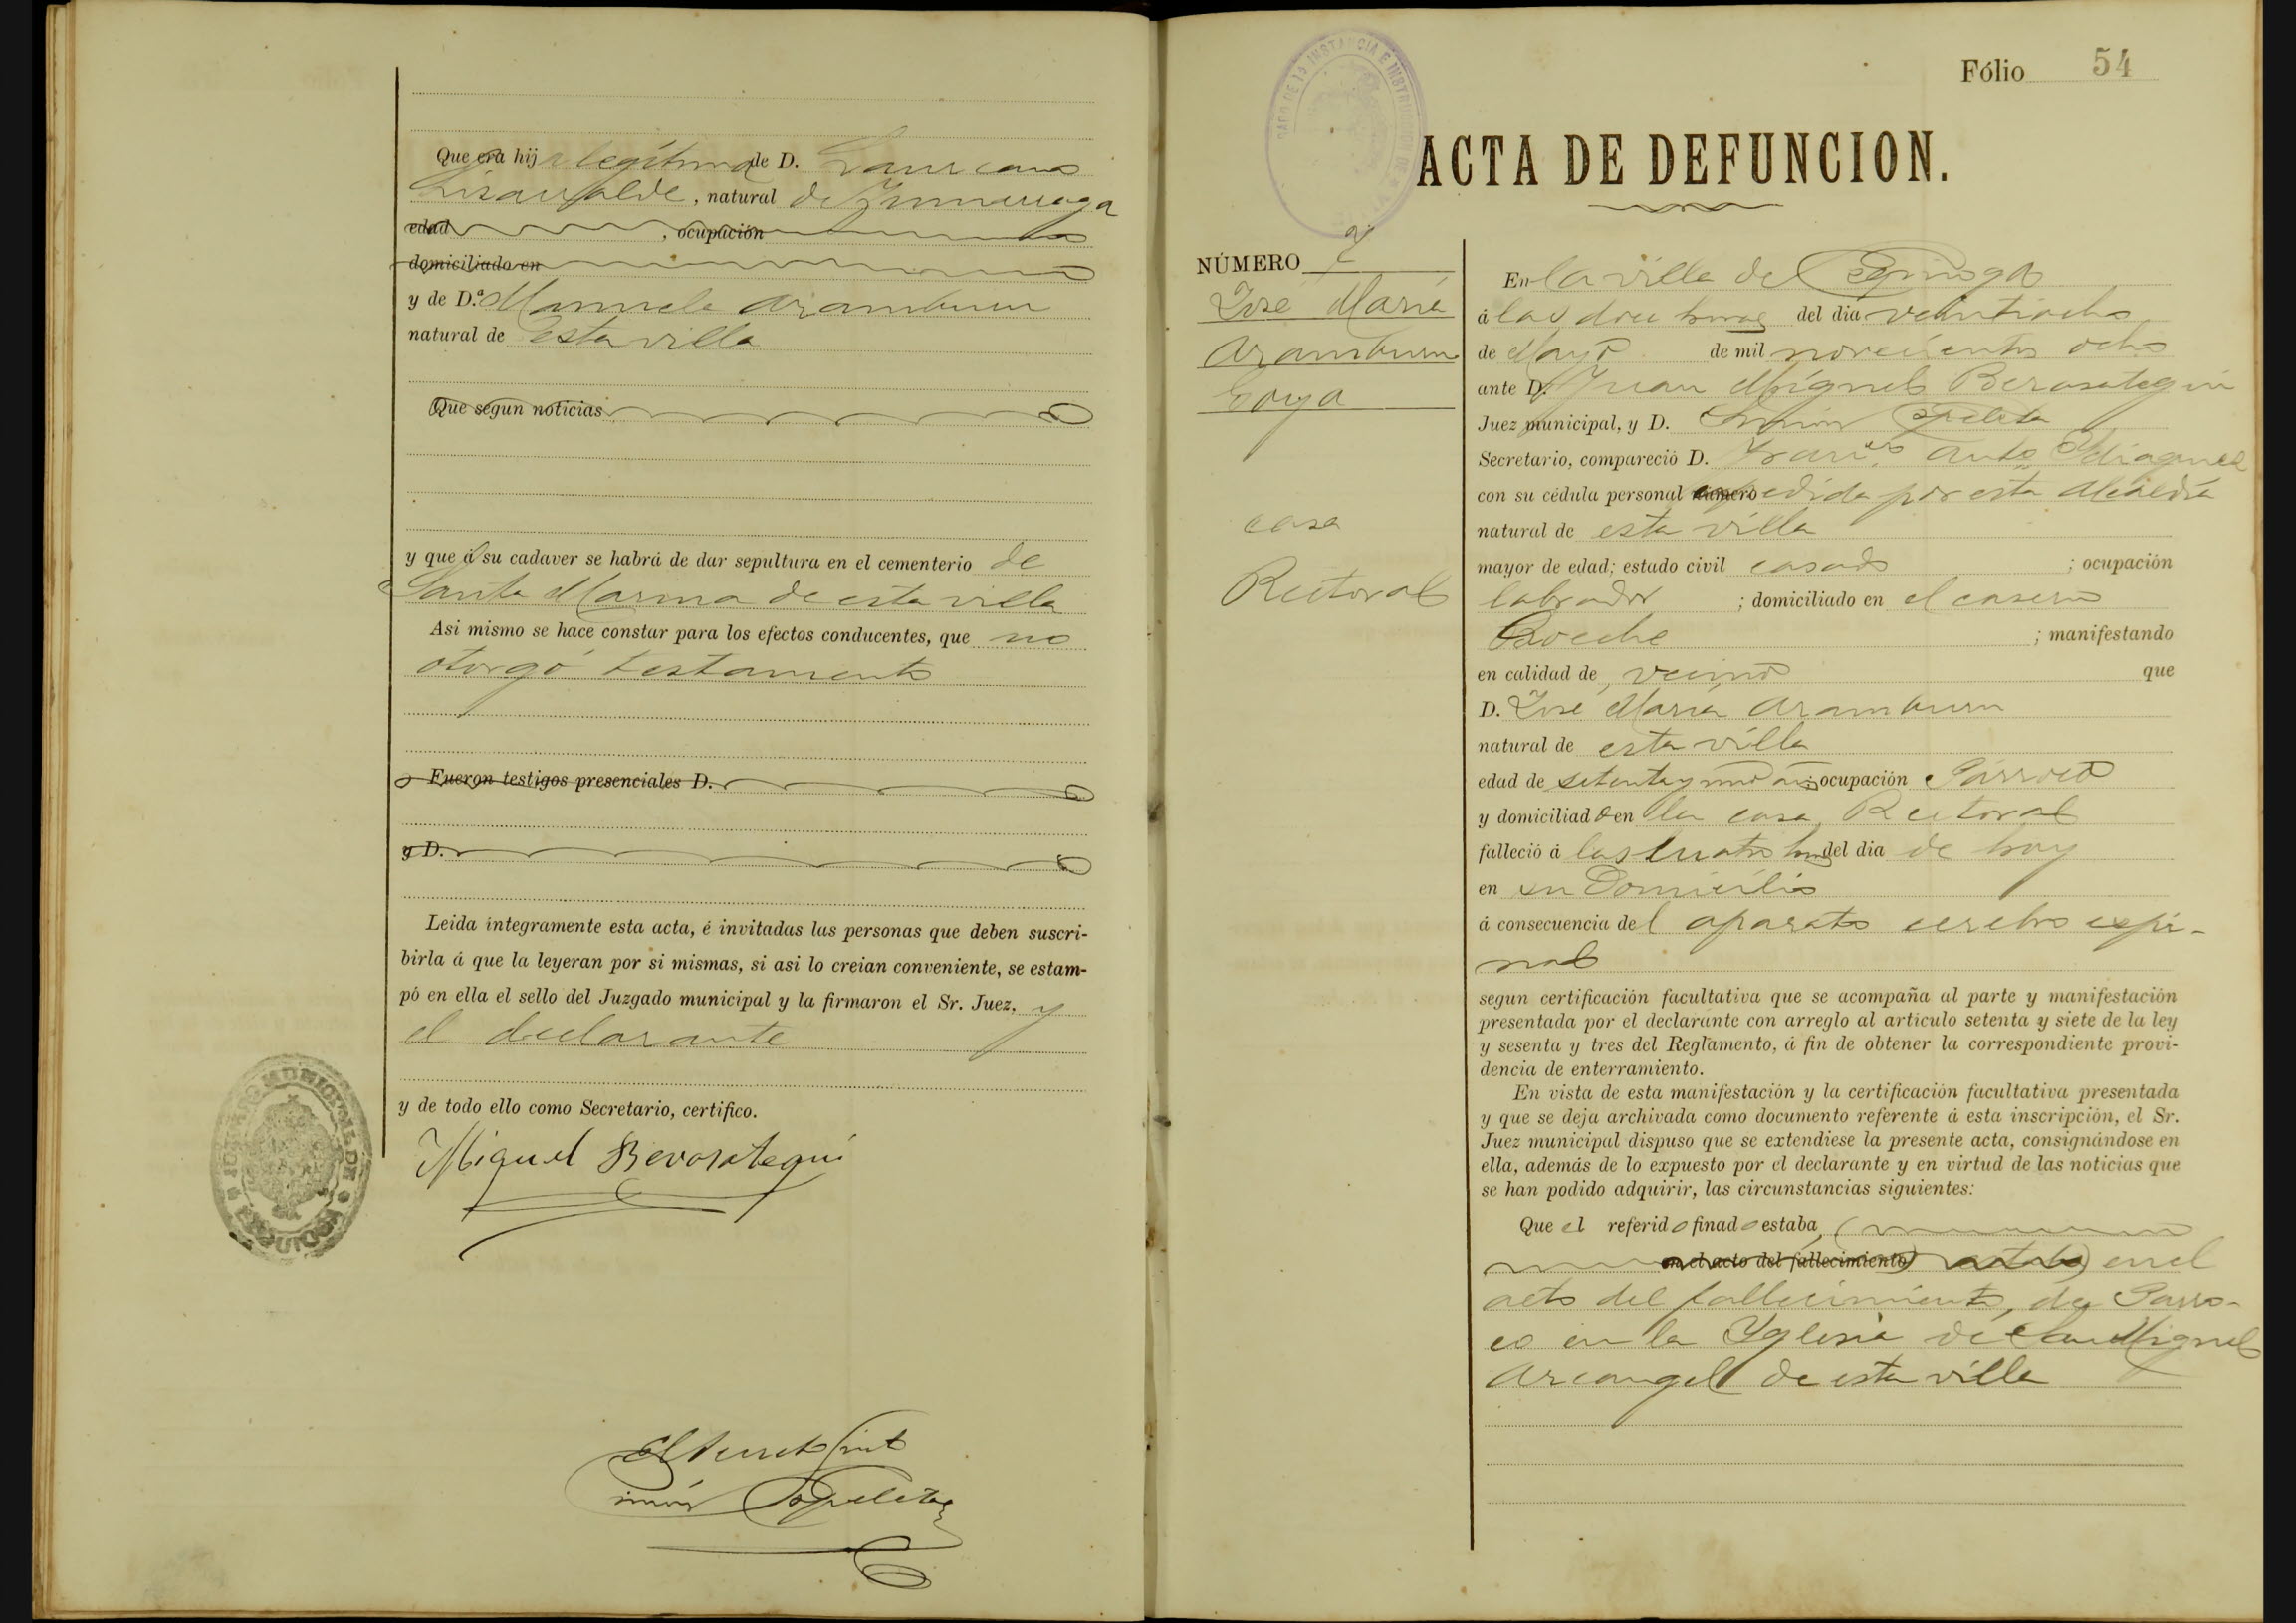 Que era hija legítima de D. Laureano
Lizarralde, natural de Zumarraga
edad , ocupación
domiciliado en
y de D.ª Manuela Aramburu
natural de esta villa
Que segun noticias
y que á su cadaver se habrá de dar sepultura en el cementerio de
Santa Marina de esta villa
Asi mismo se hace constar para los efectos conducentes, que no
otorgó testamento
Fueron testigos presenciales D.
y D.
Leida íntegramente esta acta, é invitadas las personas que deben suscri-
birla á que la leyeran por si mismas, si asi lo creian conveniente, se estam-
pó en ella el sello del Juzgado municipal y la firmaron el Sr. Juez, y
el declarante
y de todo ello como Secretario, certifico.
Miguel Berasategui
JUZGADO MUNICIPAL DE EZQUIOGA
Simón
Fólio 54
ACTA DE DEFUNCION.
NÚMERO 7
José María
Aramburu
Goya
casa
Rectoral
En la villa de Ezquioga
á las doce horas del dia veintiocho
de Mayo de mil novecientos ocho
ante D. Juan Miguel Berasategui
Juez municipal, y D. Simón
Secretario, compareció D. Franco. Anto.
con su cédula personal número expedida por esta Alcaldía
natural de esta villa
mayor de edad; estado civil casado ; ocupación
labrador ; domiciliado en el caserio
; manifestando
en calidad de vecino que
D. José María Aramburu
natural de esta villa
edad de setenta y uno años ocupación Párroco
y domiciliado en la casa Rectoral
falleció á las cuatro horas del dia de hoy
en su Domicilio
á consecuencia del aparato cerebro espi-
nal
segun certificación facultativa que se acompaña al parte y manifestación
presentada por el declarante con arreglo al artículo setenta y siete de la ley
y sesenta y tres del Reglamento, á fin de obtener la correspondiente provi-
dencia de enterramiento.
En vista de esta manifestación y la certificación facultativa presentada
y que se deja archivada como documento referente á esta inscripción, el Sr.
Juez municipal dispuso que se extendiese la presente acta, consignándose en
ella, además de lo expuesto por el declarante y en virtud de las noticias que
se han podido adquirir, las circunstancias siguientes:
Que el referido finado estaba,
en el acto del fallecimiento estaba en el
acto del fallecimiento, de Parro-
co en la Yglesia de San Miguel
Arcangel de esta villa